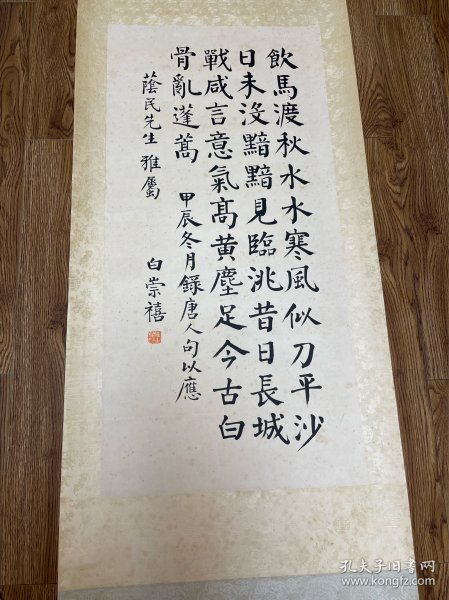 飲馬渡秋水水寒風似刀平沙
日未沒黯黯見臨洮昔日長城
戰咸言意氣高黃塵足今古白
骨亂蓬蒿
甲辰冬月錄唐人句以應
蔭民先生雅屬
白崇禧
孔夫子旧书网
www.kongfz.com